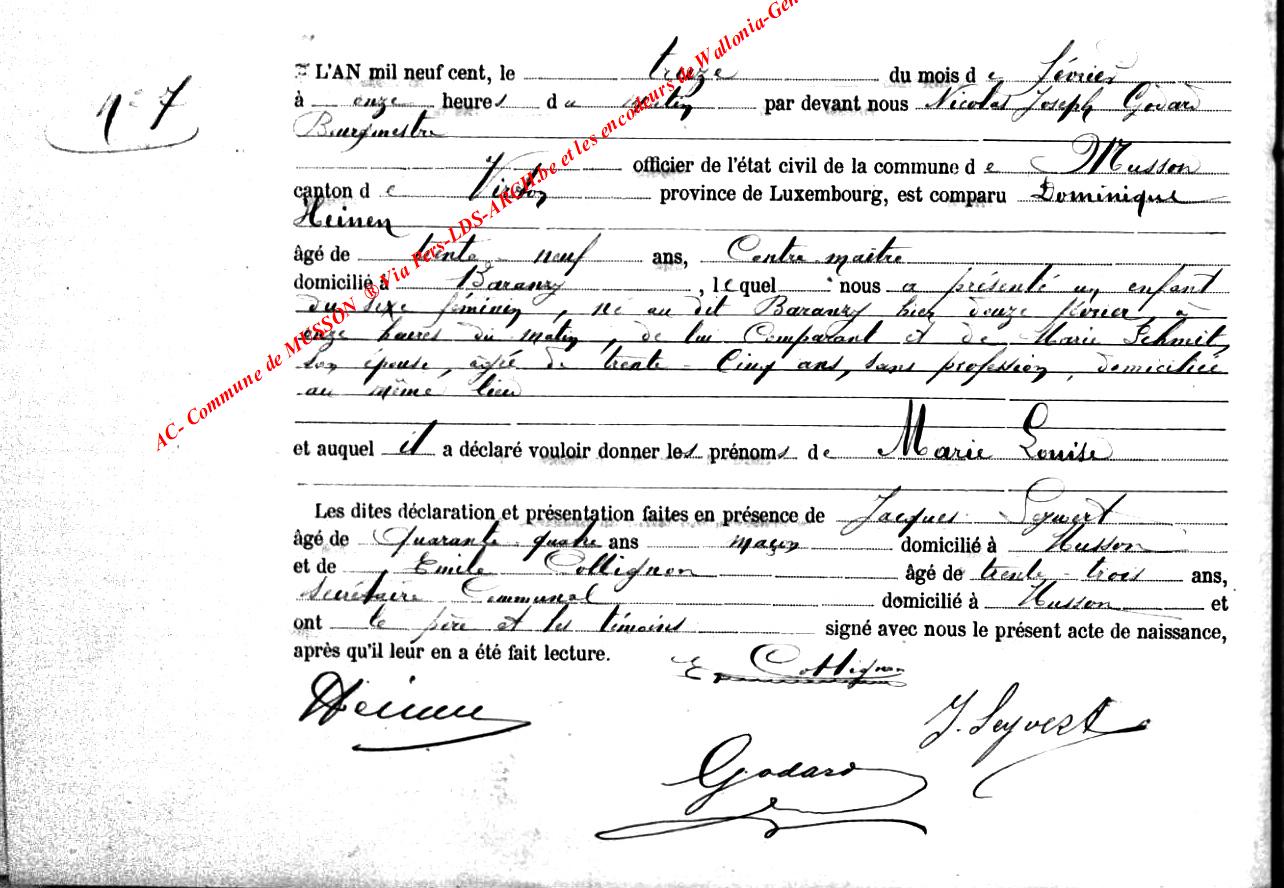 AC- Commune de MUSSON ® Via Fers-LDS-ARCH.be et les encodeurs de Wallonia-Gen
N° 7
L'AN mil neuf cent, le treize du mois de février
à onze heures du matin par devant nous Nicolas Joseph Godard
Bourgmestre
officier de l'état civil de la commune de Musson
canton de Virton province de Luxembourg, est comparu Dominique
Heinen
âgé de trente neuf ans, Contre maître
domicilié à Baranzy, lequel nous a présenté un enfant
du sexe féminin, né au dit Baranzy hier douze février, à
onze heures du matin, de lui Comparant et de Marie Schmit,
son épouse, agée de trente-Cinq ans, sans profession, domiciliée
au même lieu
et auquel il a déclaré vouloir donner les prénoms de Marie Louise
Les dites déclaration et présentation faites en présence de Jacques Seywert
âgé de Quarante quatre ans maçon domicilié à Musson
et de Emile Collignon âgé de trente-trois ans,
Secrétaire Communal domicilié à Musson et
ont le père et les témoins signé avec nous le présent acte de naissance,
après qu'il leur en a été fait lecture.
E Collignon
Heinen
J. Seywert
Godard